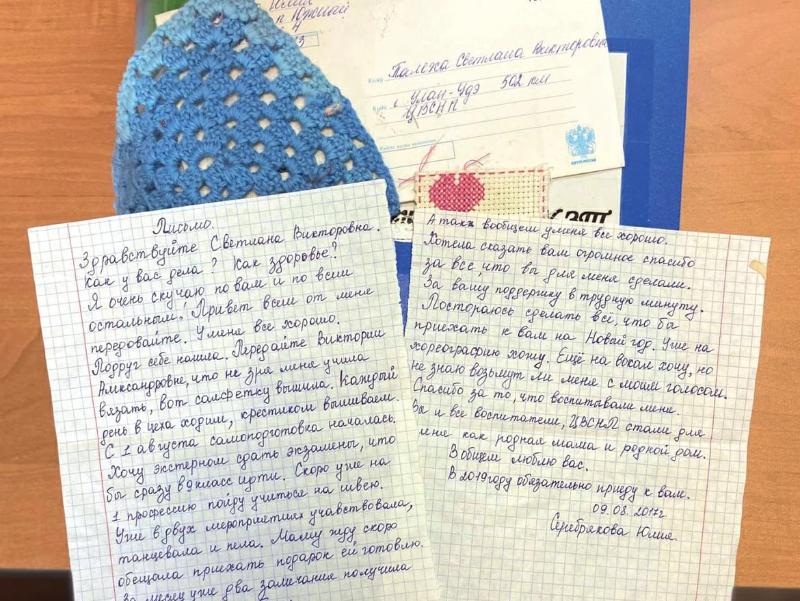 п Южный
Кому Талежа Светлана Викторовна
Куда г Улан-Удэ 502 км
ЦВСНП
Письмо.
Здравствуйте Светлана Викторовна.
Как у вас дела? Как здоровье?
Я очень скучаю по вам и по всем
остальным. Привет всем от меня
передовайте. У меня все хорошо.
Подруг себе нашла. Передайте Виктории
Александровне, что не зря меня учила
вязать, вот салфетку вышила. Каждый
день в цеха ходим, крестиком вышиваем.
С 1 августа самоподготовка началась.
Хочу экстерном сдать экзамены, что
бы сразу в 9 класс идти. Скоро уже на
1 профессию пойду учиться на швею.
Уже в двух мероприятиях учавствовала,
танцевала и пела. Маму жду скоро
обещала приехать подарок ей готовлю.
За месяц уже два замечания получила
А так вообщем у меня все хорошо.
Хотела сказать вам огромное спасибо
за все что вы для меня сделали.
За вашу поддержку в трудную минуту.
Постораюсь сделать всё, что бы
приехать к вам на Новый год. Уже на
хореографию хожу. Ещё на вокал хочу, но
не знаю возьмут ли меня с моим голосом.
Спасибо за то, что воспитывали меня.
Вы и все воспитатели, ЦВСНП стали для
меня как родная мама и родной дом.
В общем люблю вас.
В 2019 году обязательно приеду к вам.
09.08.2017г
Серебрякова Юлия.